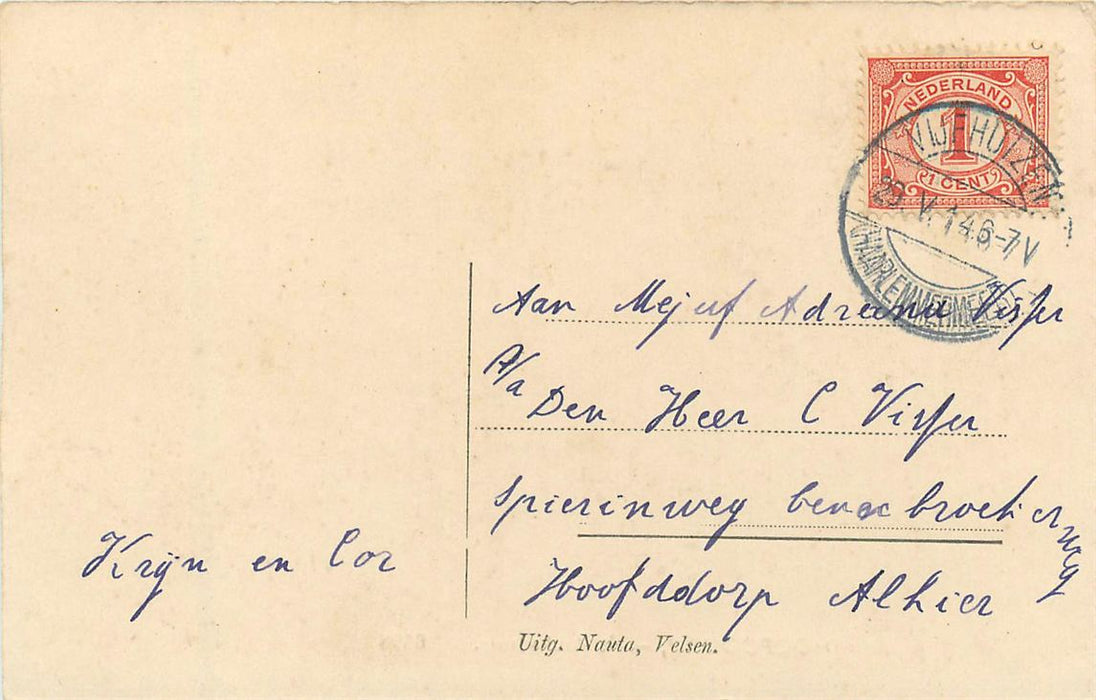 NEDERLAND
1
1 CENT
VIJFHUIZEN
14 6-7V
(HAARLEMMERMEER)
Aan Mejuf Adreana Visser
P/a Den Heer C Visser
Spierinweg
Hoofddorp Alhier
Krijn en Cor
Uitg. Nauta, Velsen.